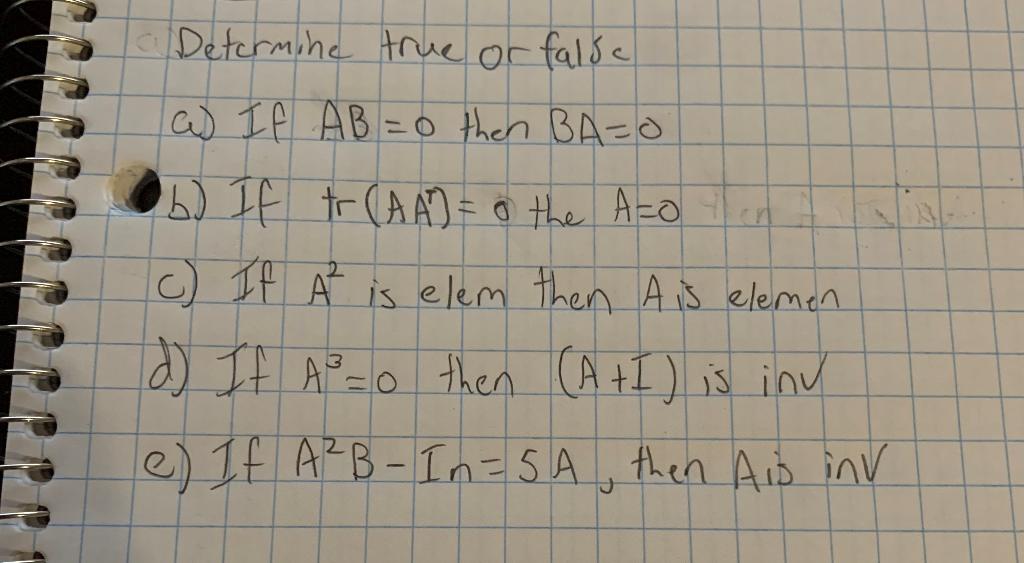 Determine true or false
a) If AB = 0 then BA = 0
b) If tr(AAᵀ) = 0 the A = 0
c) If A² is elem then A is elemen
d) If A³ = 0 then (A + I) is inv
e) If A²B - In = 5A, then A is inv